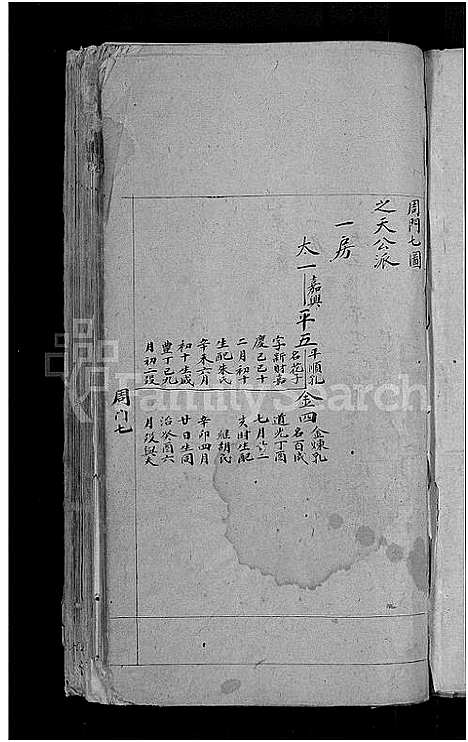 周門七圖
之天公派
一房
太一
嘉興
平五
平順乳
名花子
字新財嘉
慶己巳十
二月初十
生配朱氏
辛未六月
初十生咸
豐丁巳九
月初二歿
金四
金煉乳
名百成
道光丁酉
七月廿二
亥時生配
繼胡氏
辛卯四月
廿日生同
治癸酉六
月歿與夫
周門七
FamilySearch